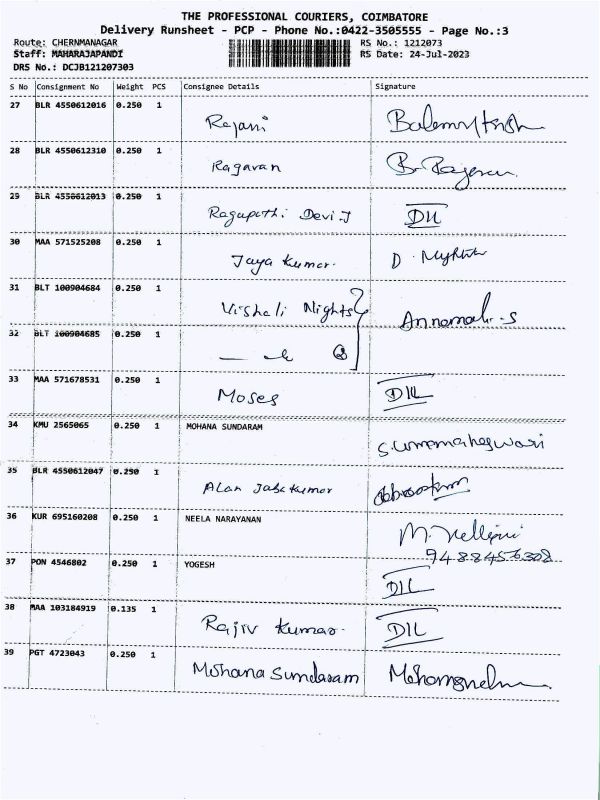 THE PROFESSIONAL COURIERS, COIMBATORE
Delivery Runsheet - PCP - Phone No.:0422-3505555 - Page No.:3
Route: CHERNMANAGAR RS No.: 1212073
Staff: MAHARAJAPANDI RS Date: 24-Jul-2023
DRS No.: DCJB121207303
S No Consignment No Weight PCS Consignee Details Signature
27 BLR 4550612016 0.250 1 Rajani
28 BLR 4550612310 0.250 1 Ragavan
29 BLR 4550612013 0.250 1 Ragupathi Devi J DIL
30 MAA 571525208 0.250 1 Jaya Kumar. D.
31 BLT 100904684 0.250 1 Vishali Nights
32 BLT 100904685 0.250 1
33 MAA 571678531 0.250 1 Moses DIL
34 KMU 2565065 0.250 1 MOHANA SUNDARAM S.Umamaheswari
35 BLR 4550612047 0.250 1 Alan Jabakumar
36 KUR 695160208 0.250 1 NEELA NARAYANAN M.
9488456308
37 PON 4546802 0.250 1 YOGESH DIL
38 MAA 103184919 0.135 1 Rajiv Kumar. DIL
39 PGT 4723043 0.250 1 Mohana Sundaram